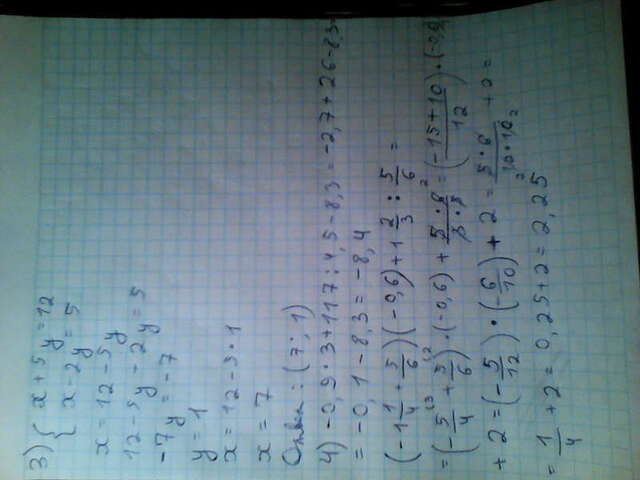 3) { x + 5y = 12
x - 2y = 5
x = 12 - 5y
12 - 5y - 2y = 5
-7y = -7
y = 1
x = 12 - 5 · 1
x = 7
Ответ: (7; 1)
4) -0,9 · 3 + 117 : 4,5 - 8,3 = -2,7 + 26 - 8,3 =
= -0,1 - 8,3 = -8,4
(-1 1/4 + 5/6)(-0,6) + 1 2/3 : 5/6 =
= (-5/4 + 5/6) · (-0,6) + 5·6/3·5 = (-15+10/12) · (-0,6)
+ 2 = (-5/12) · (-6/10) + 2 = 5·6/10·10 + 2 =
= 1/4 + 2 = 0,25 + 2 = 2,25